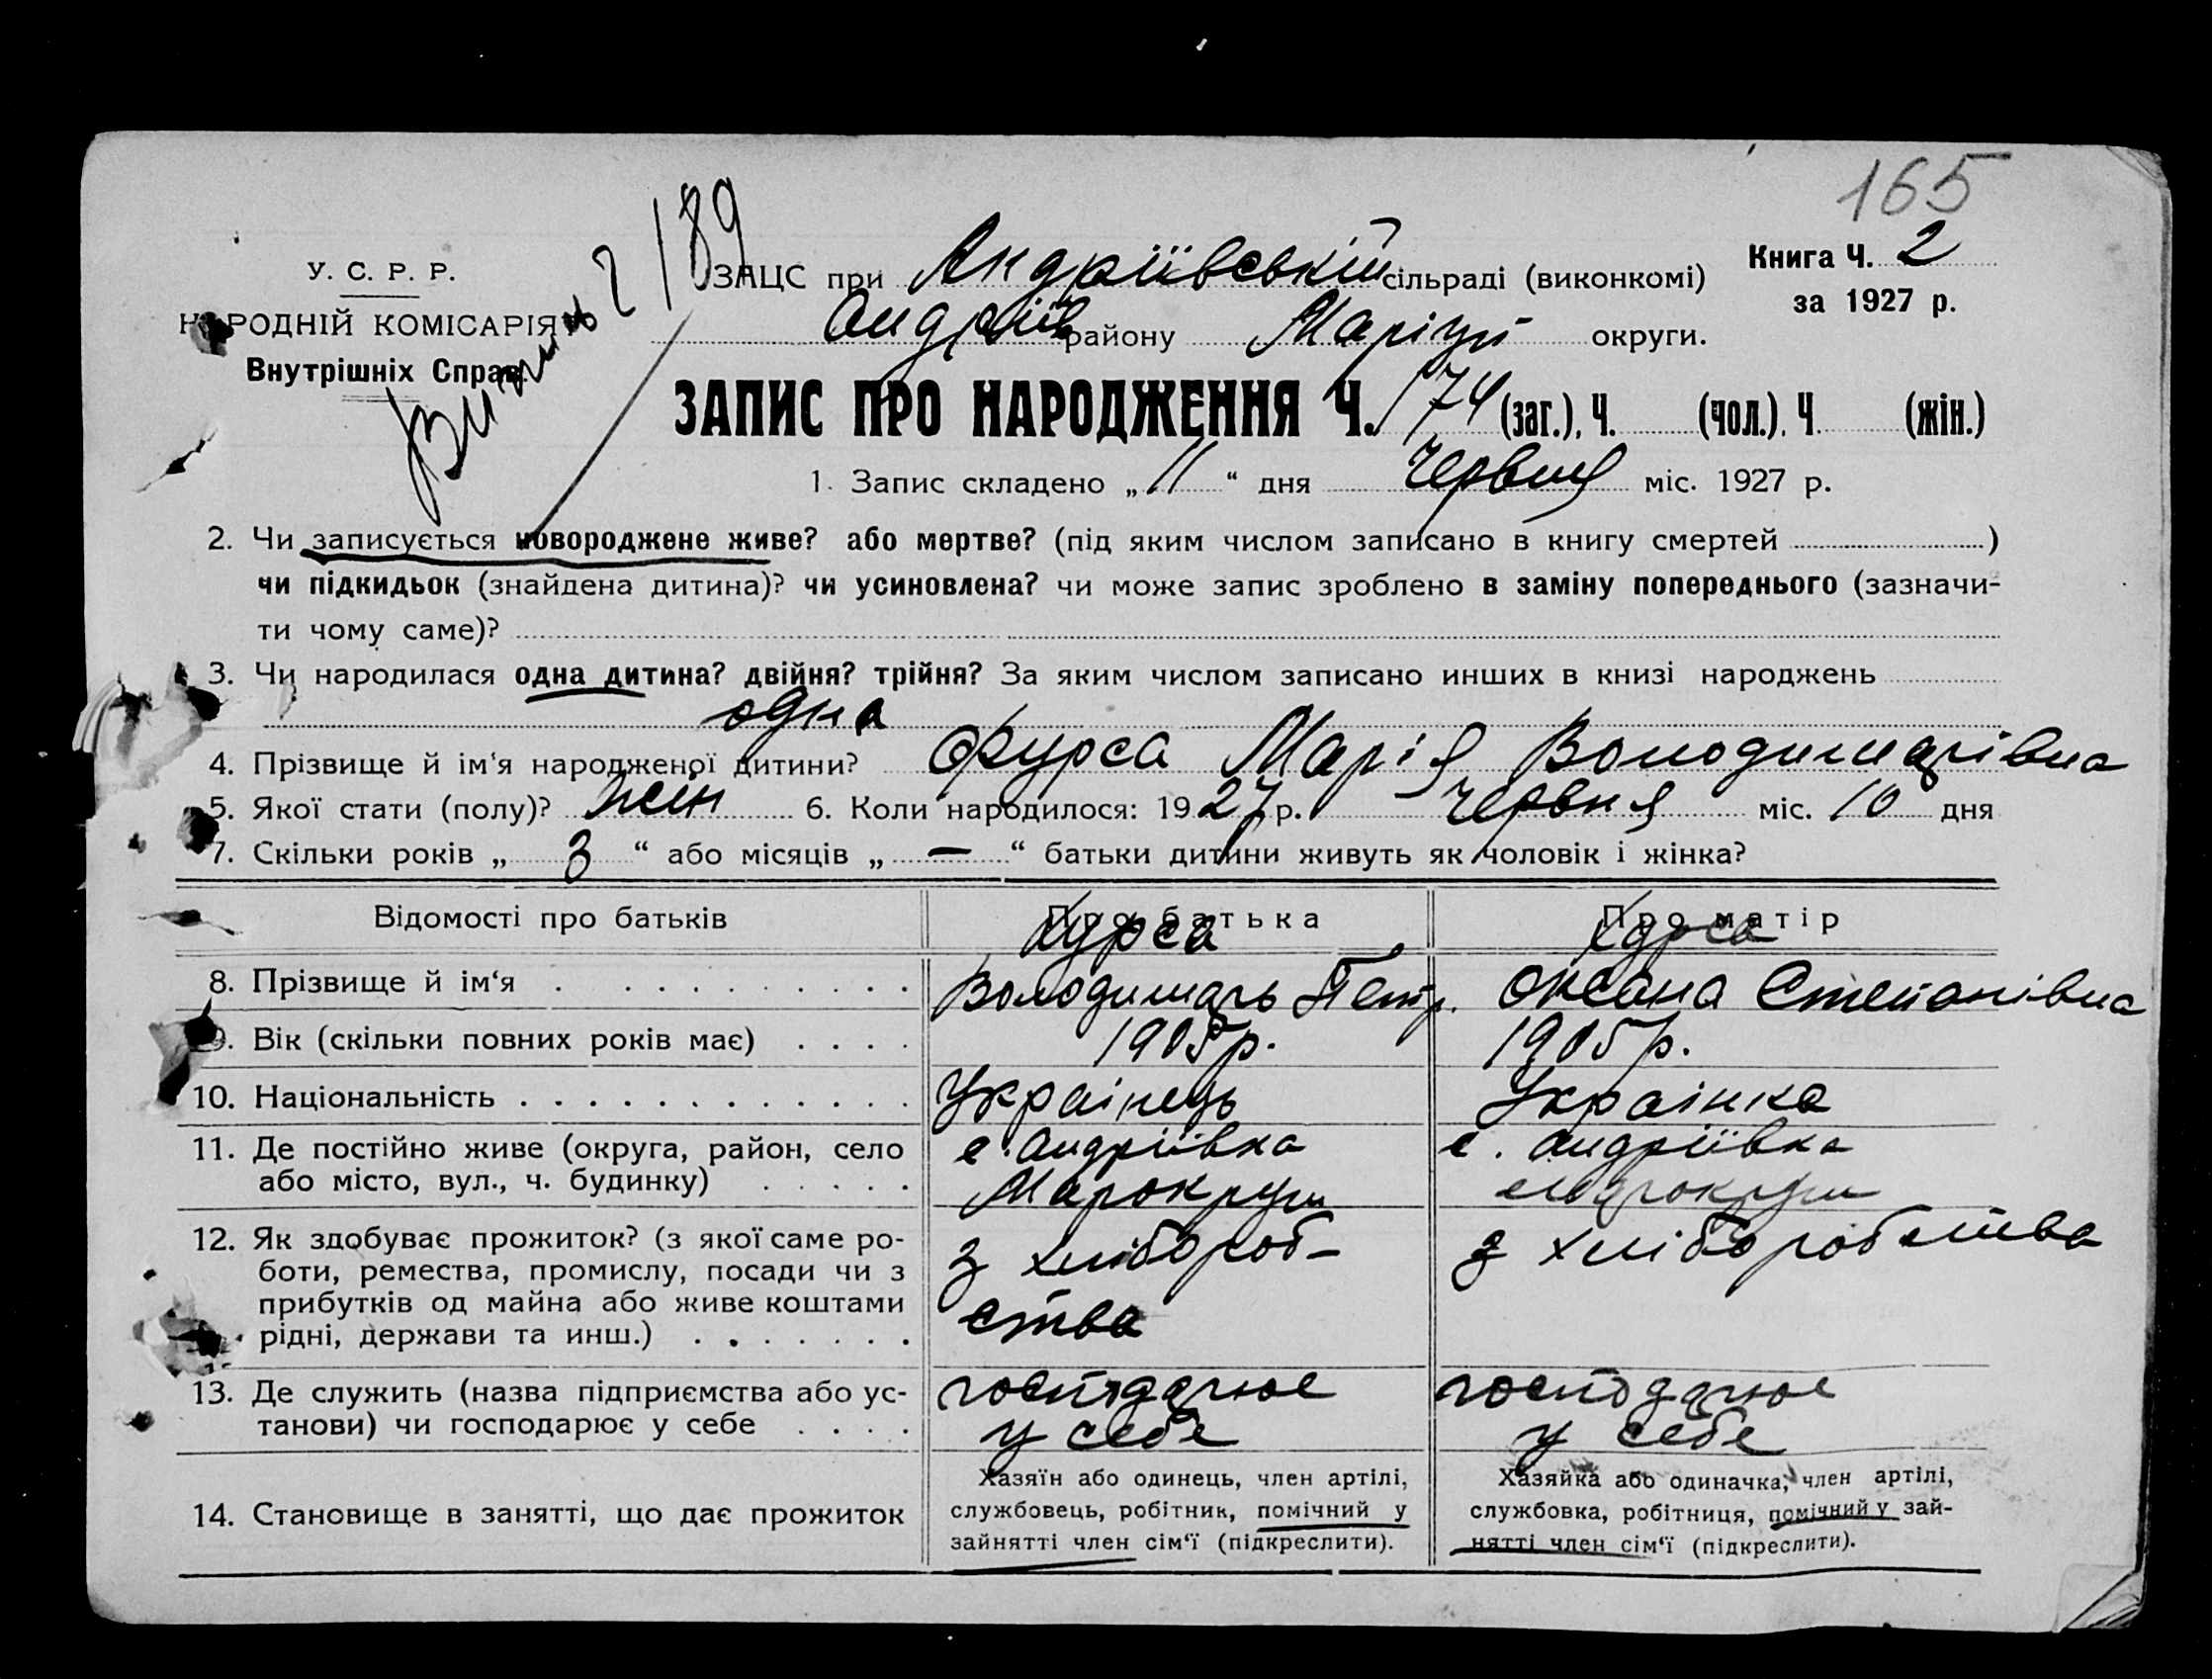 165
У. С. Р. Р.
НАРОДНІЙ КОМІСАРІЯТ
Внутрішніх Справ.
189
ЗАЦС при Андріївській сільраді (виконкомі)
Андріїв району Маріуп округи.
Книга Ч. 2
за 1927 р.
ЗАПИС ПРО НАРОДЖЕННЯ Ч. 174 (заг.), Ч. (чол.), Ч. (жін.)
1. Запис складено „ 11 “ дня червня міс. 1927 р.
2. Чи записується новороджене живе? або мертве? (під яким числом записано в книгу смертей )
чи підкидьок (знайдена дитина)? чи усиновлена? чи може запис зроблено в заміну попереднього (зазначи-
ти чому саме)?
3. Чи народилася одна дитина? двійня? трійня? За яким числом записано инших в книзі народжень
одна
4. Прізвище й ім‘я народженої дитини? Фурса Марія Володимарівна
5. Якої стати (полу)? жін 6. Коли народилося: 1927 р. червня міс. 10 дня
7. Скільки років „ 3 “ або місяців „ — “ батьки дитини живуть як чоловік і жінка?
Відомості про батьків Про батька Про матір
8. Прізвище й ім‘я . Фурса Володимарь Петр. Фурса Оксана Степанівна
9. Вік (скільки повних років має) . . . . 1905 р. 1905 р.
10. Національність . . . Українець Українка
11. Де постійно живе (округа, район, село с. Андріївка с. Андріївка
або місто, вул., ч. будинку) . . . . . Марокруги
12. Як здобуває прожиток? (з якої саме ро- з хлібороб- з хліборобства
боти, ремества, промислу, посади чи з ства
прибутків од майна або живе коштами
рідні, держави та инш.) . . . . . . .
13. Де служить (назва підприємства або ус- господарює господарює
танови) чи господарює у себе . . . . у себе у себе
14. Становище в занятті, що дає прожиток
Хазяїн або одинець, член артілі,
службовець, робітник, помічний у
зайнятті член сім‘ї (підкреслити).
Хазяйка або одиначка, член артілі,
службовка, робітниця, помічний у зай-
нятті член сім‘ї (підкреслити).